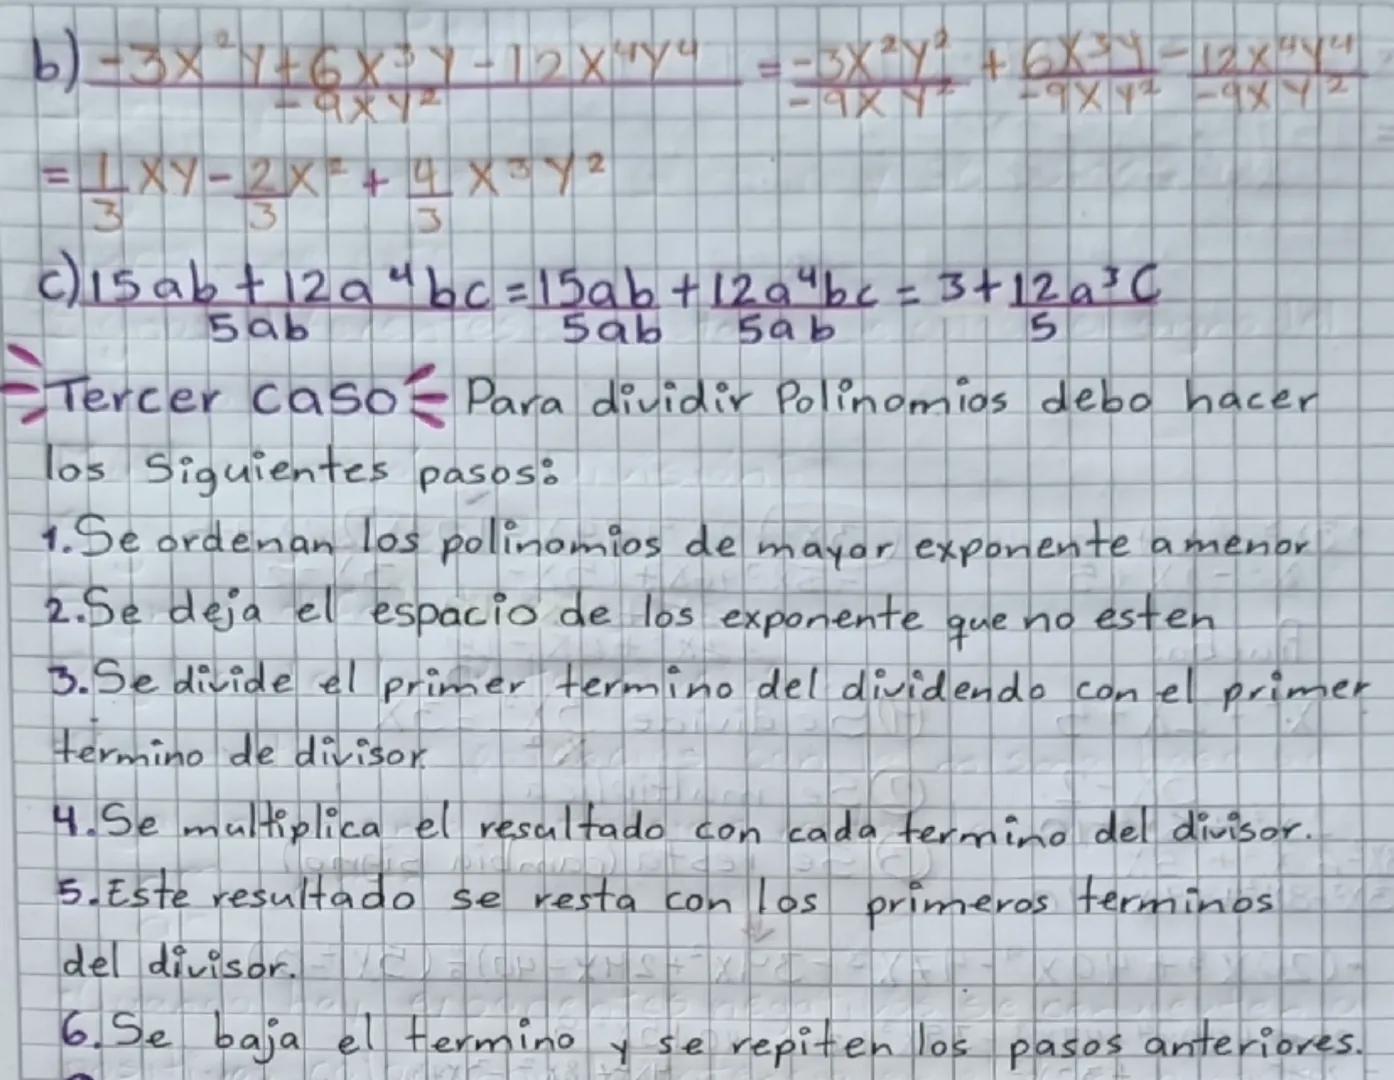 b) -3x²y+6x³y-12x⁴y⁴ / -9xy² = -3x²y² / -9xy² + 6x³y / -9xy² - 12x⁴y⁴ / -9xy²
= 1/3 xy - 2/3 x² + 4/3 x³y²
c) 15ab + 12a⁴bc / 5ab = 15ab / 5ab + 12a⁴bc / 5ab = 3 + 12a³c / 5
Tercer caso Para dividir Polinomios debo hacer
los siguientes pasos:
1. Se ordenan los polinomios de mayor exponente a menor
2. Se deja el espacio de los exponente que no esten
3. Se divide el primer termino del dividendo con el primer
termino de divisor
4. Se multiplica el resultado con cada termino del divisor.
5. Este resultado se resta con los primeros terminos
del divisor.
6. Se baja el termino y se repiten los pasos anteriores.